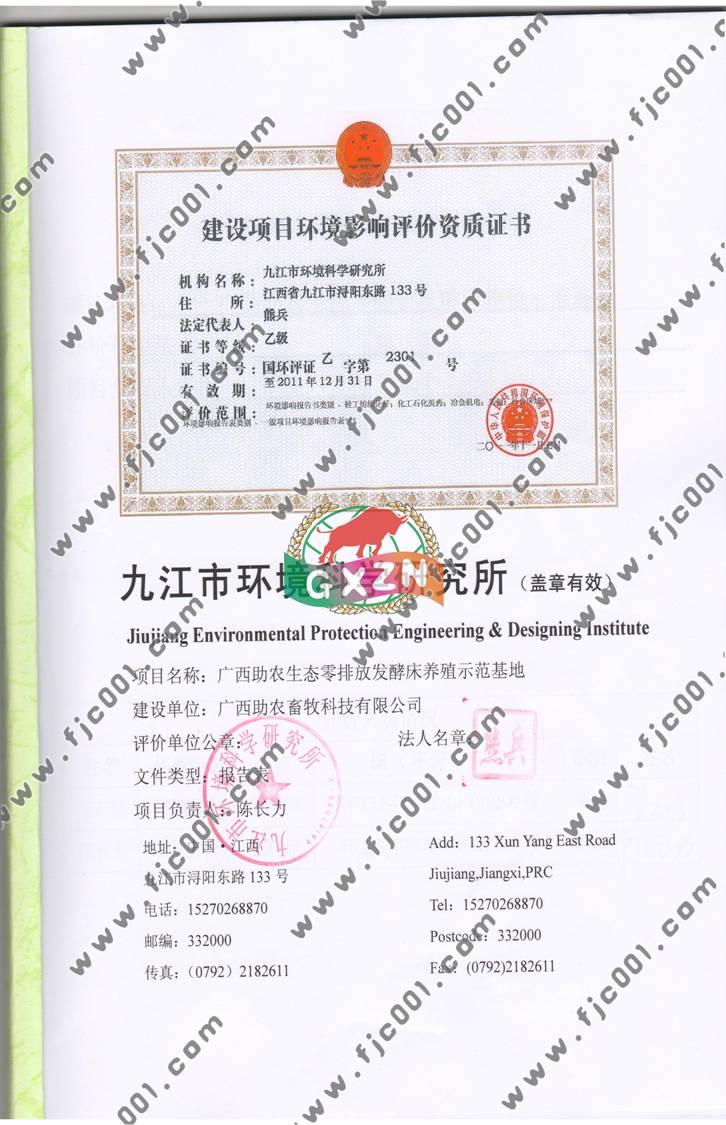 建设项目环境影响评价资质证书
机构名称：九江市环境科学研究所
住 所：江西省九江市浔阳东路133号
法定代表人：熊兵
证书等级：乙级
证书编号：国环评证 乙 字第 2301 号
有效期：至2011年12月31日
评价范围：环境影响报告书类别
环境影响报告表类别
九江市环境科学研究所（盖章有效）
GXZN
Jiujiang Environmental Protection Engineering & Designing Institute
项目名称：广西助农生态零排放发酵床养殖示范基地
建设单位：广西助农畜牧科技有限公司
评价单位公章：
法人名章：
熊兵
九江市环境科学研究所
文件类型：报告表
项目负责人：陈长力
地址：中国·江西
九江市浔阳东路133号
电话：15270268870
邮编：332000
传真：（0792）2182611
Add: 133 Xun Yang East Road
Jiujiang,Jiangxi,PRC
Tel: 15270268870
Postcode: 332000
Fax: (0792)2182611
www.fjc001.com